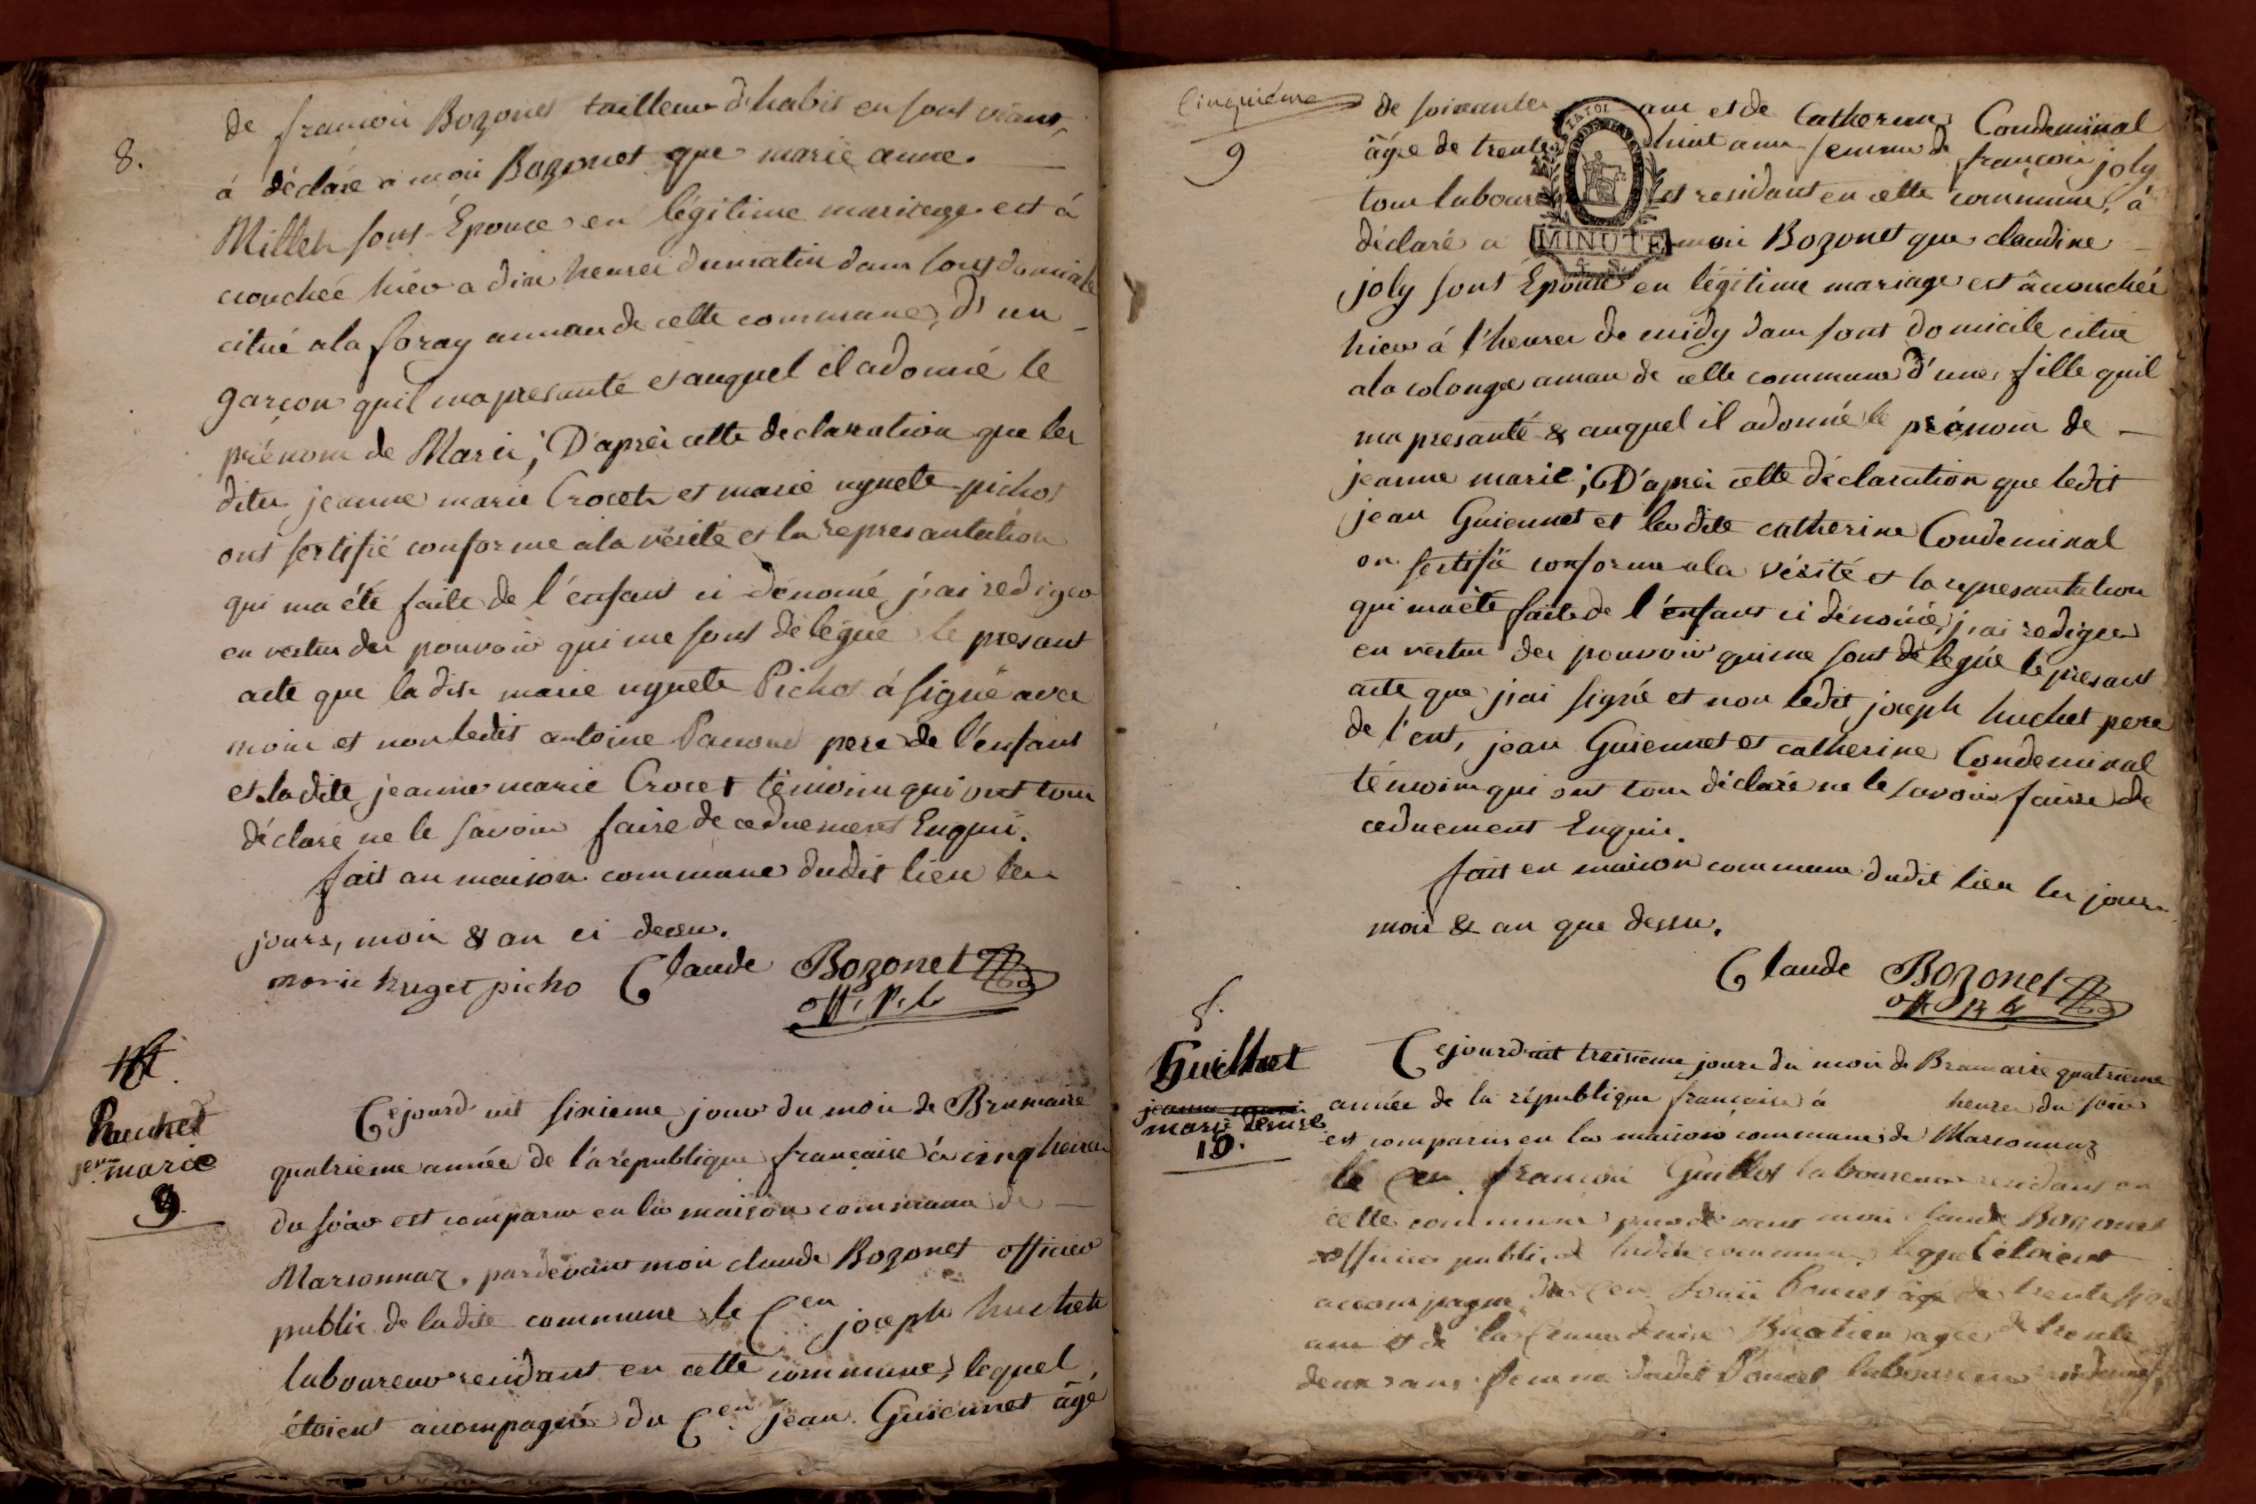 8.
de francois Bozonet tailleur d'habit en sont vivant,
à déclaré à moi Bozonet que marie anne
Millet sont Epouce en légitime mariage est à
couchée hier a dix heures du matin dans sont domicile
citué ala foray annan de cette commune, d'un
garçon quil ma presanté et auquel il a donné le
prénom de Marie; D'après cette déclaration que les
dites jeanne marie Crocet et marie uguete pichot
ont sertifié conforme ala vérité et la represantation
qui ma été faite de l'enfant ci dénomé j'ai rediger
en vertu des pouvoir qui me sont délégué le presant
acte que la dite marie uguete Pichot à signé avec
moi et non ledit antoine pere de l'enfant
et ladite jeanne marie Crocet témoin qui ont tous
déclaré ne le savoir faire de ceduement Enquis.
fait an maison commune dudit lieu les
jours, mois & an ci dessu.
marie huget picho Claude Bozonet
off. p. b
huchet
jean marie
9
Cejourd'uit sixieme jour du mois de Brumaire
quatrieme année de la république française à cinq heures
du soir est comparu en la maison commune de
Marsonnaz, pardevant moi claude Bozonet officier
public de ladite commune le Cen joseph huchet
laboureur residant en cette commune, lequel
étoient acompagné du Cen jean Guiennet âgé
Cinquième
9
de soixante ans et de Catherine Condeminal
âgée de trente huit ans femme de françois joly
tous laboure et residant en cette commune, à
déclaré a MINUTE moi Bozonet que claudine
joly sont Epouce en légitime mariage est àcouchée
hier à l'heure de midy dans sont domicile citué
ala colonge aman de cette commune d'une fille quil
ma presanté & auquel il adonné le prénom de
jeanne marie; D'après cette déclaration que ledit
jean Guiennet et ladite catherine Condeminal
on sertifié conforme ala vérité et la represantation
qui ma été faite de l'enfant ci dénomé, j'ai rediger
en vertu des pouvoir qui me sont délégué le presant
acte que j'ai signé et non ledit joseph huchet pere
de l'ent, jean Guiennet et catherine Condeminal
témoin qui ont tous déclaré ne le savoir faire de
ceduement Enquis.
fait en maison commune dudit lieu les jours
mois & an que dessu.
Claude Bozonet
off
f.
Guillot
marie denise
10.
Cejourd'uit treisième jour du mois de Brumaire quatrième
année de la république française à heures du soir
est comparu en la maison commune de Marsonnaz
le Cen. francois Guillot laboureur residant en
cette commune pardevant moi Claude Bozonet
officier public de ladite commune lequel étoient
accompagné du Cen Poncet âgé de trente
ans et de la Cenne denise agée de trente
deux ans femme dudit Poncet laboureur